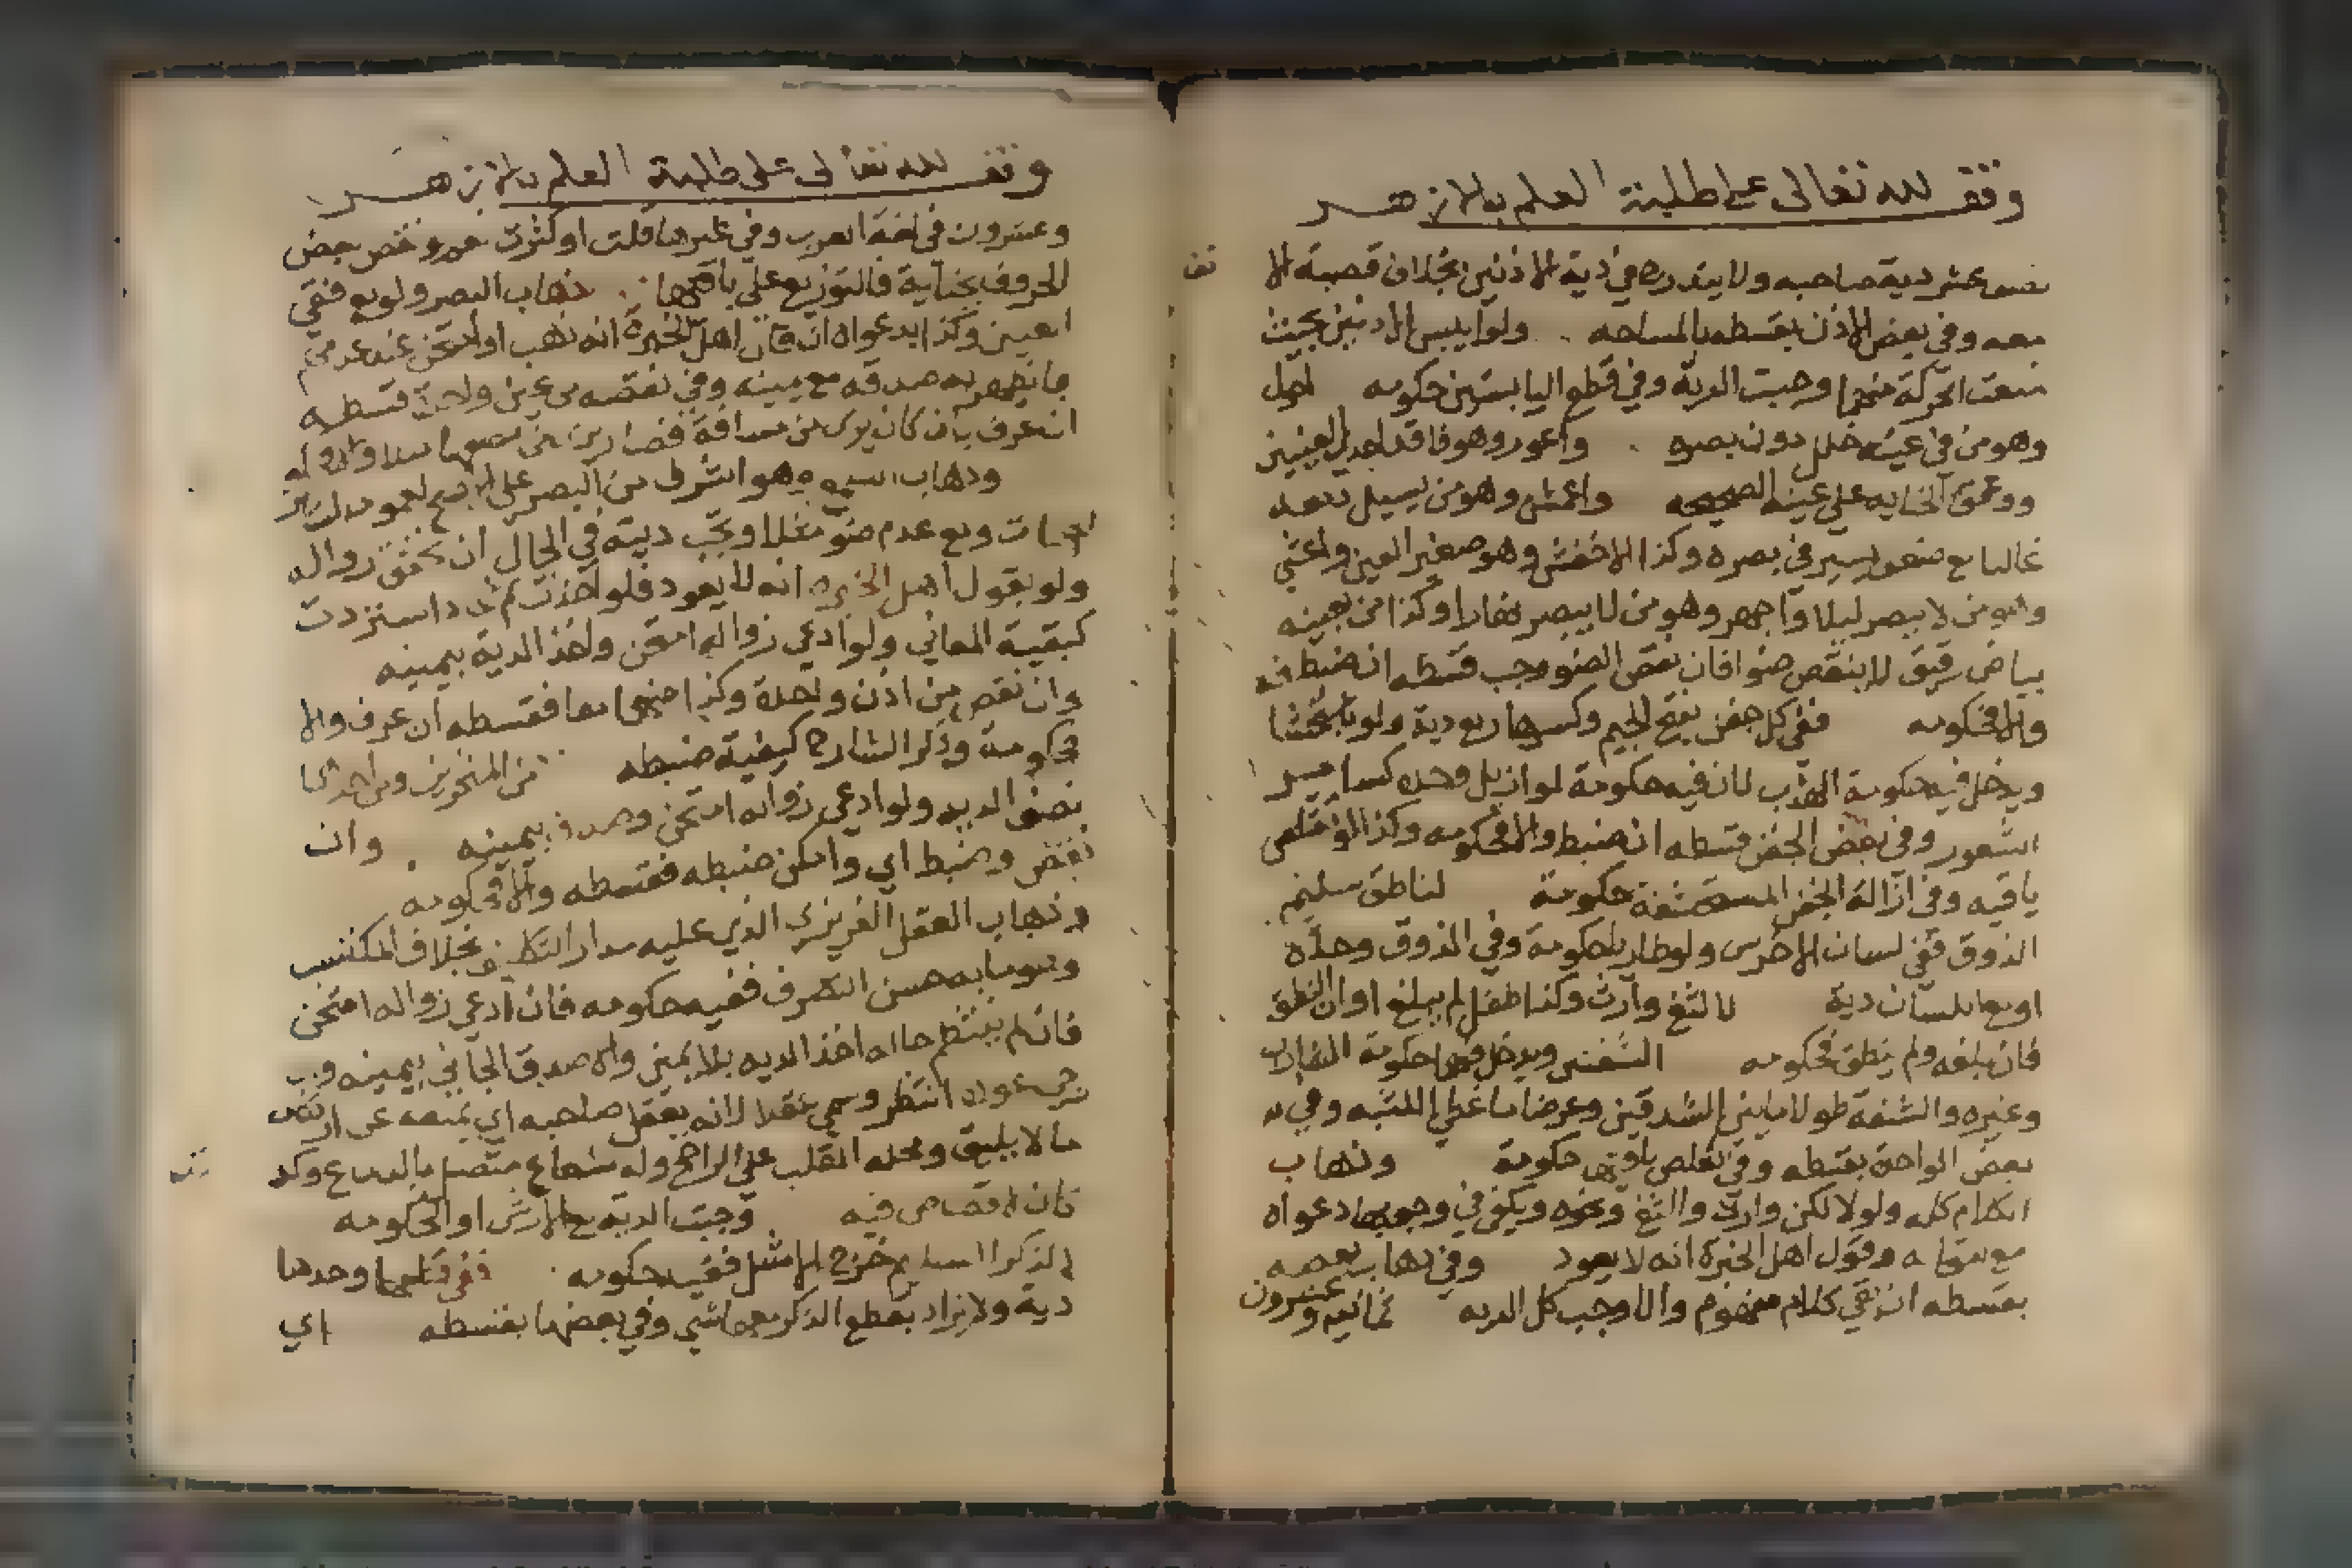 وقف لله تعالى على طلبة العلم بالازهر
عشر دية صاحبه ولا يقدر في دية الاذنين بخلاف قصبة الا
معه وفي بعض الاذن بقسطه بالمساحه ولو ايبس الاذنين بحيث
منعت الحركة منهما وجبت الدية وفي قطع اليابستين حكومه احول
وهو من في عينه خلل دون بصره واعور وهو فاقد احدي العينين
ووقعت الجنايه علي عينه الصحيحه واعمش وهو من يسيل دمعه
غالبا مع ضعف يسير في بصره وكذا الاخفش وهو صغير العين واعشي
وهو من لا يبصر ليلا واجهر وهو من لا يبصر نهارا وكذا من بعينه
بياض رقيق لا ينقص ضوا فان نقص الضو وجب قسطه ان ضبط
والا فحكومه ففي كل جفن بفتح الجيم وكسرها ربع دية ولو
ويدخل فيه حكومة الهدب لان فيه حكومة لو ازيل وحده كساير
الشعور وفي بعض الجفن قسطه ان ضبط والا فحكومه وكذا لو تقلص
باقيه وفي ازالة الجفن المستحشفة حكومة لناطق سليم
الذوق ففي لسان الاخرس ولو طار يا حكومة وفي الذوق وحده
او مع اللسان دية لالثغ وارت وكذا طفل لم يبلغ اوان النطق
فان بلغه ولم ينطق فحكومه الشفتين ويدخل فيهما حكومة الشارب
وغيره والشفة طولا ما بين الشدقين وعرضا ما غطي اللثة وفي
بعض الواحدة بقسطه وفي تقلص باقيها حكومة وذهاب
الكلام كله ولو لالكن وارت والثغ ونحوه ويكفي في وجوبها دعواه
مع قول اهل الخبرة انه لا يعود وفي ذهاب بعضه
بقسطه ان بقي كلام مفهوم والا وجب كل الديه ثمانيه وعشرون
وقف لله تعالى على طلبة العلم بالازهر
وعشرون في لغة العرب وفي غيرها قلت او كثرت بعض
الحروف بجناية فالتوزيع علي باقيها ذهاب البصر ولو مع فقي
العين وكذا يدعواه ان قال اهل الخبرة انه ذهب او امتحن عند عدمهم
بما يظهر به صدقه مع يمينه وفي نقصه من عين واحدة قسطه
ان عرف بان كان يري من مسافة فصار يري من نصفها
وذهاب السمع وهو اشرف من البصر علي الاصح
الجهات ومع عدم ضو وتجب ديته في الحال ان تحقق زواله
ولو بقول اهل الخبره انه لا يعود فلو اخذت ثم عاد استردت
كبقية المعاني ولو ادعي زواله امتحن واخذ الدية بيمينه
وان نقص من اذن واحدة وكذا منهما معا فقسطه ان عرف والا
فحكومة وذكر الشارح كيفية ضبطه من المنخرين ومن احدهما
نصف الديه ولو ادعي زواله امتحن وصدق بيمينه وان
نقص وضبط اي وامكن ضبطه فقسطه والا فحكومه
وذهاب العقل الغريزي الذي عليه مدار التكليف بخلاف المكتسب
وهو ما به حسن التصرف ففيه حكومه فان ادعي زواله امتحن
فان لم ينتظم حاله اخذ الديه بلا يمين والا صدق الجاني بيمينه
عوده انتظر وسمي عقلا لانه يعقل صاحبه اي يمنعه عن ارتكاب
ما لا يليق ومحله القلب علي الراجح وله شعاع متصل بالدماغ
كان لا قصاص فيه وجبت الدية مع الارش او الحكومه
الذكر السليم خرج الاشل ففيه حكومه ففي قلعها وحدها
دية ولا يزاد بقطع الذكر معها شي وفي بعضها بقسطه اي